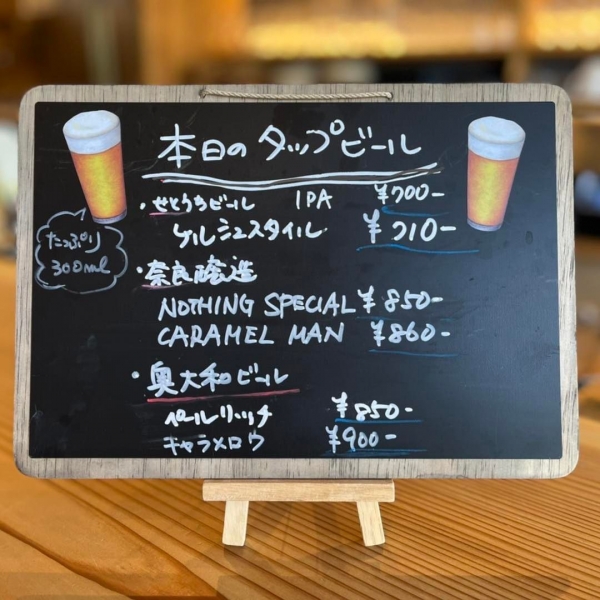 本日のタップビール
・せとうちビール IPA ¥700-
ケルシュスタイル ¥710-
たっぷり
300ml
・奈良醸造
NOTHING SPECIAL ¥850-
CARAMEL MAN ¥860-
・奥大和ビール
ペールリッチ ¥850-
キャラメロウ ¥900-